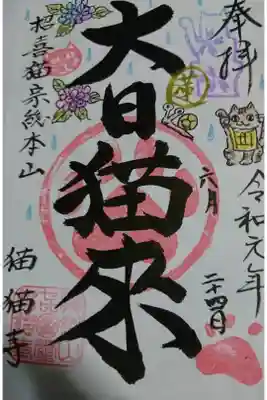 奉拝
令和元年
六月
二十四日
大日猫來
招喜猫宗総本山
猫猫寺